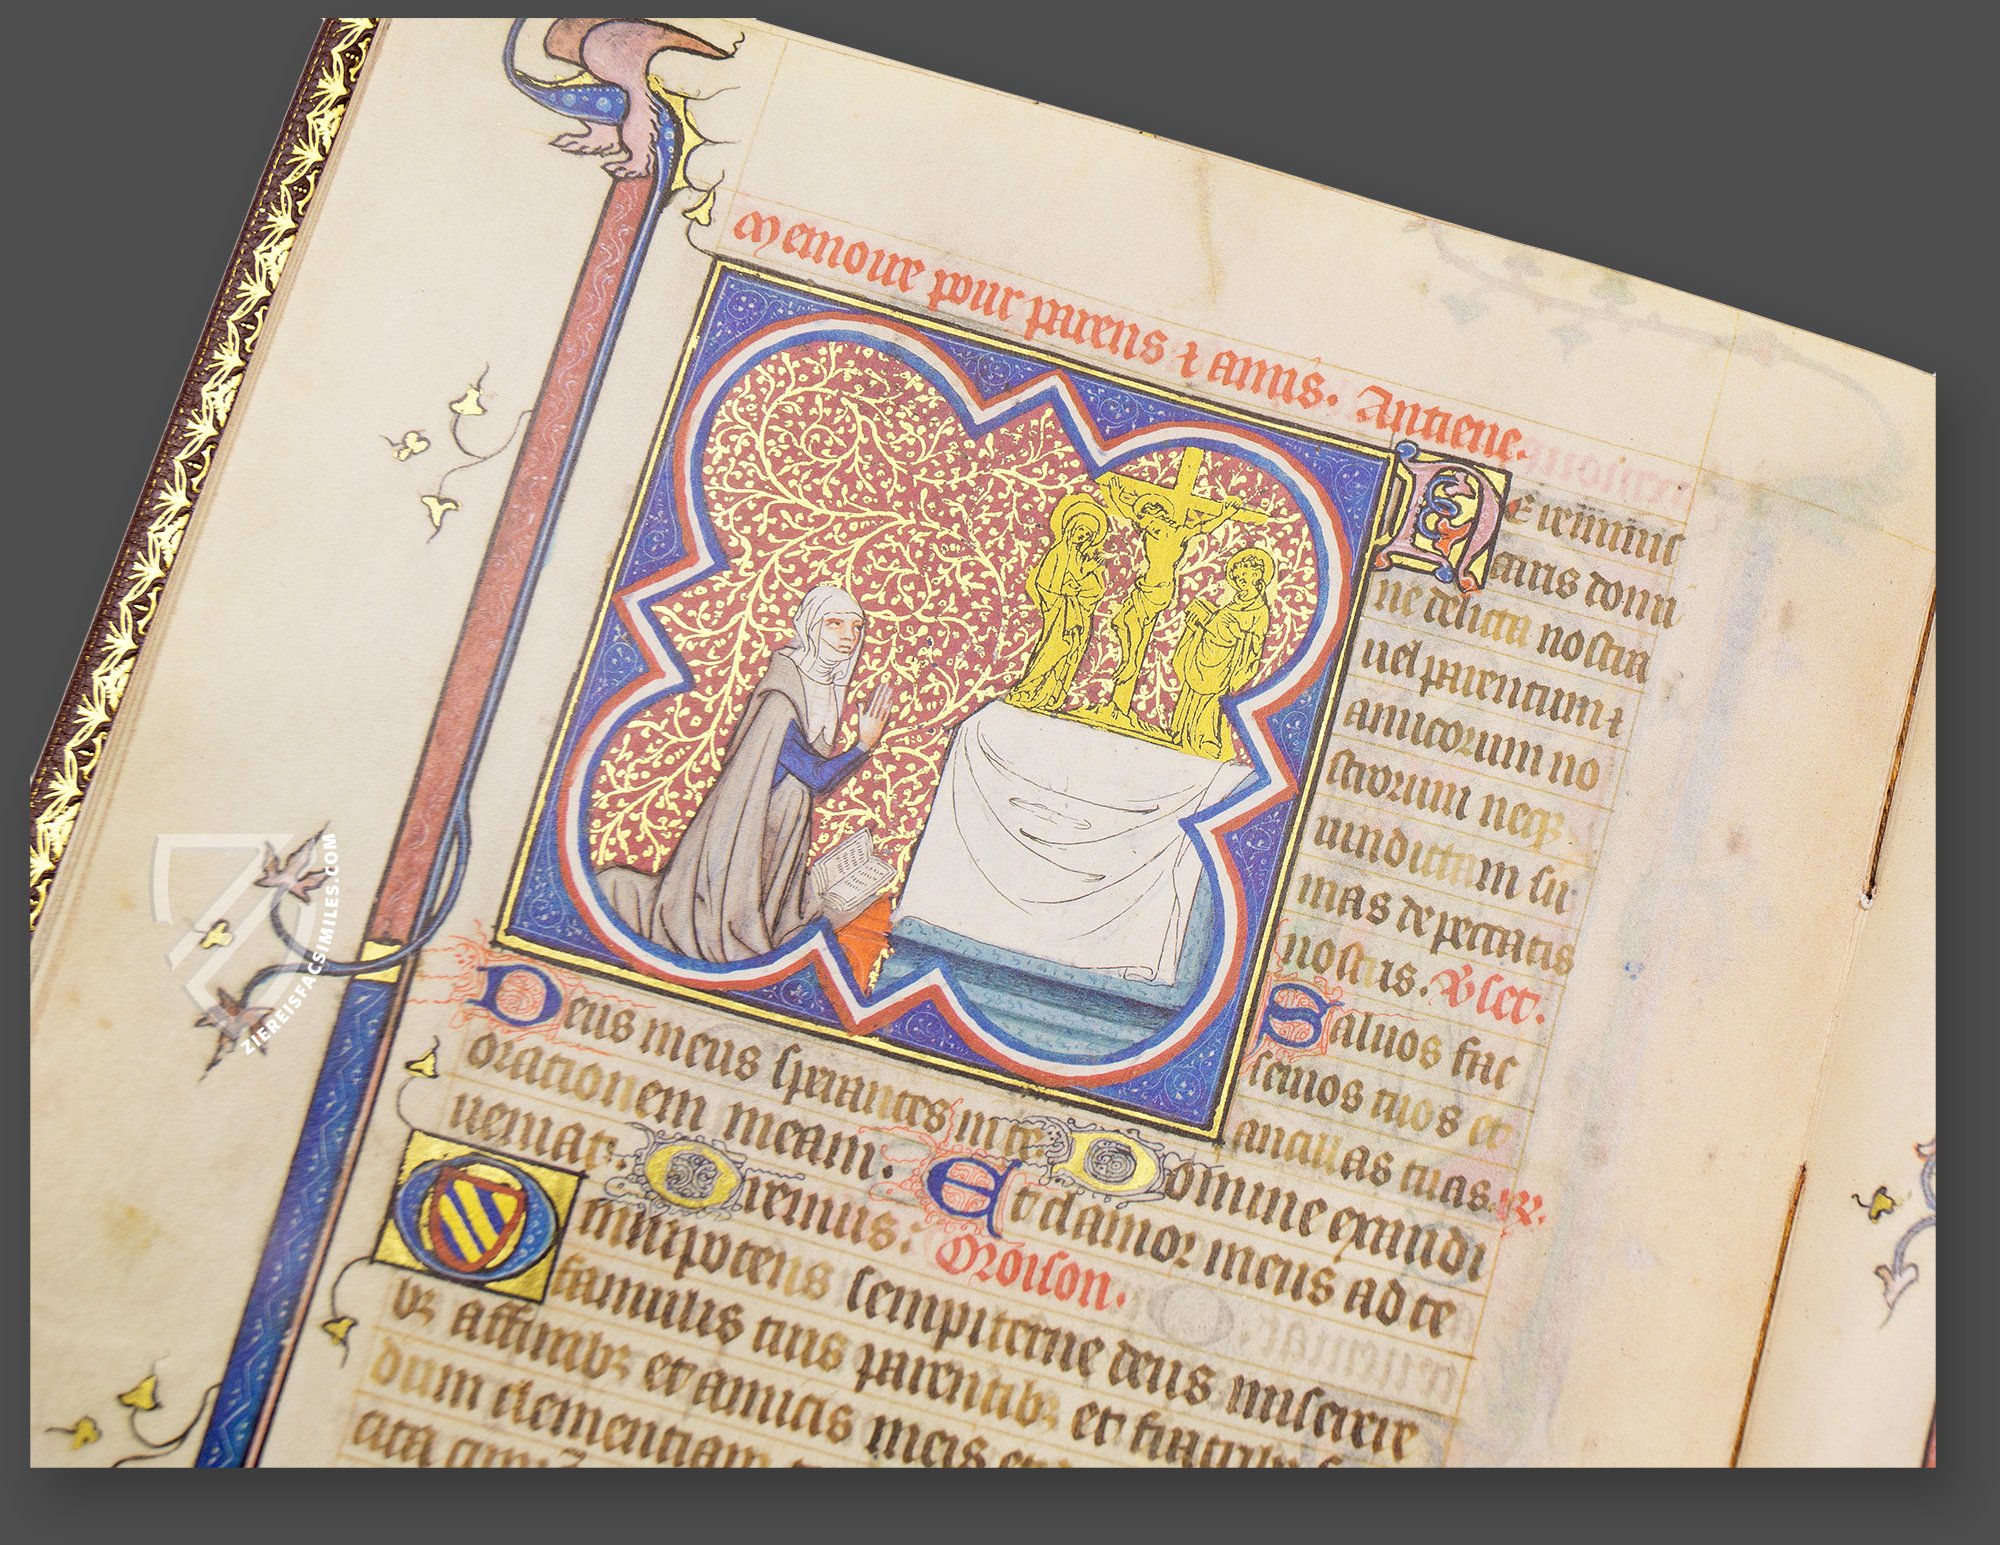 Memoire pour parens ⁊ amis. Antiene.
NE reminis
caris domi
ne delicta nostra
uel parentum ⁊
amicorum no
strorum neqꝫ
uindictam su
mas de peccatis
nostris. Vset.
Saluos fac
seruos tuos et
ancillas tuas. R.
Deus meus sperantes in te. Domine exaudi
orationem meam. Et clamor meus ad te
ueniat. Oremus: Oroison.
Omnipotens sempiterne deus miserere
famulis tuis parentibꝰ et fratribꝰ
bꝰ affinibꝰ et amicis meis
dum clementiam
ZIEREISFACSIMILES.COM